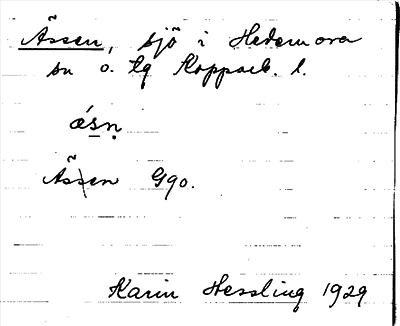 Ässen, sjö i Hedemora
sn o. tg Kopparb. l.
ǽsṇ
Ässen Ggo.
Karin Hessling 1929